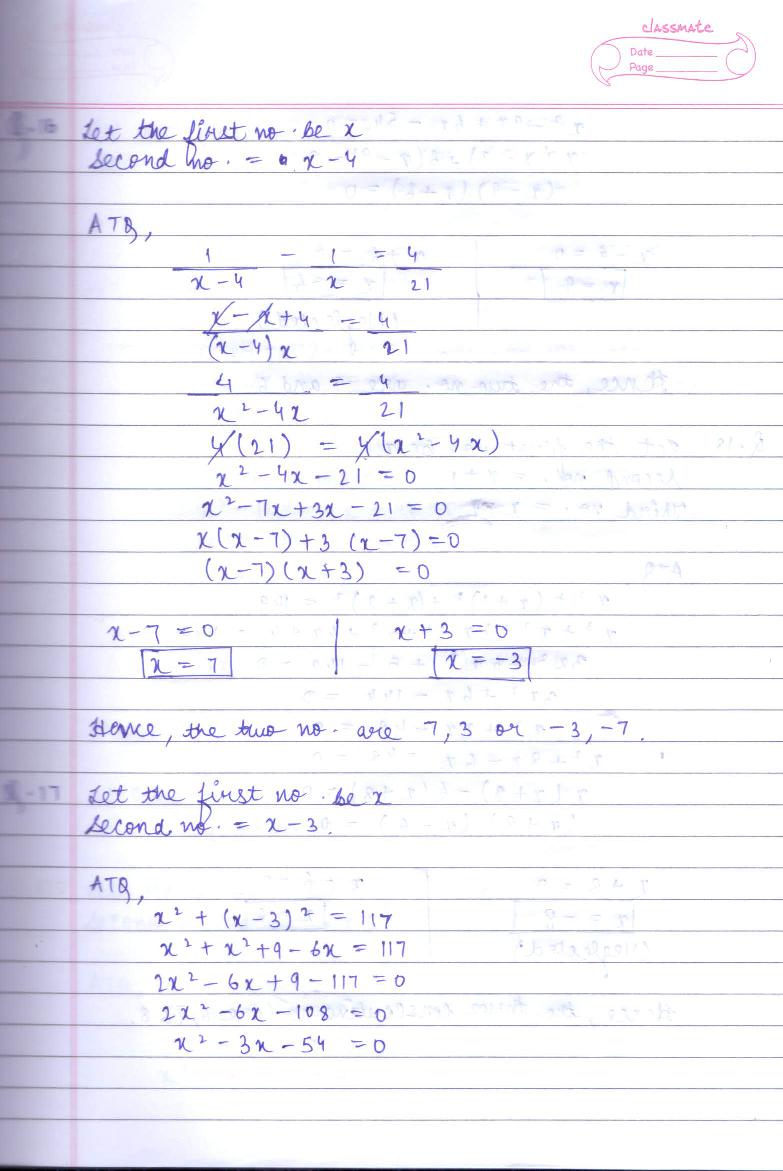 classmate
Date
Page
Let the first no. be x
Second no. = x-4
ATQ,
1/(x-4) - 1/x = 4/21
(x-x+4)/((x-4)x) = 4/21
4/(x²-4x) = 4/21
4(21) = 4(x²-4x)
x²-4x-21 = 0
x²-7x+3x-21 = 0
x(x-7)+3(x-7)=0
(x-7)(x+3) =0
x-7 = 0 | x+3 = 0
x = 7 | x = -3
Hence, the two no. are 7, 3 or -3, -7.
-17 Let the first no. be x
Second no. = x-3.
ATQ,
x² + (x-3)² = 117
x² + x²+9-6x = 117
2x²-6x+9-117 = 0
2x²-6x-108 = 0
x²-3x-54 = 0